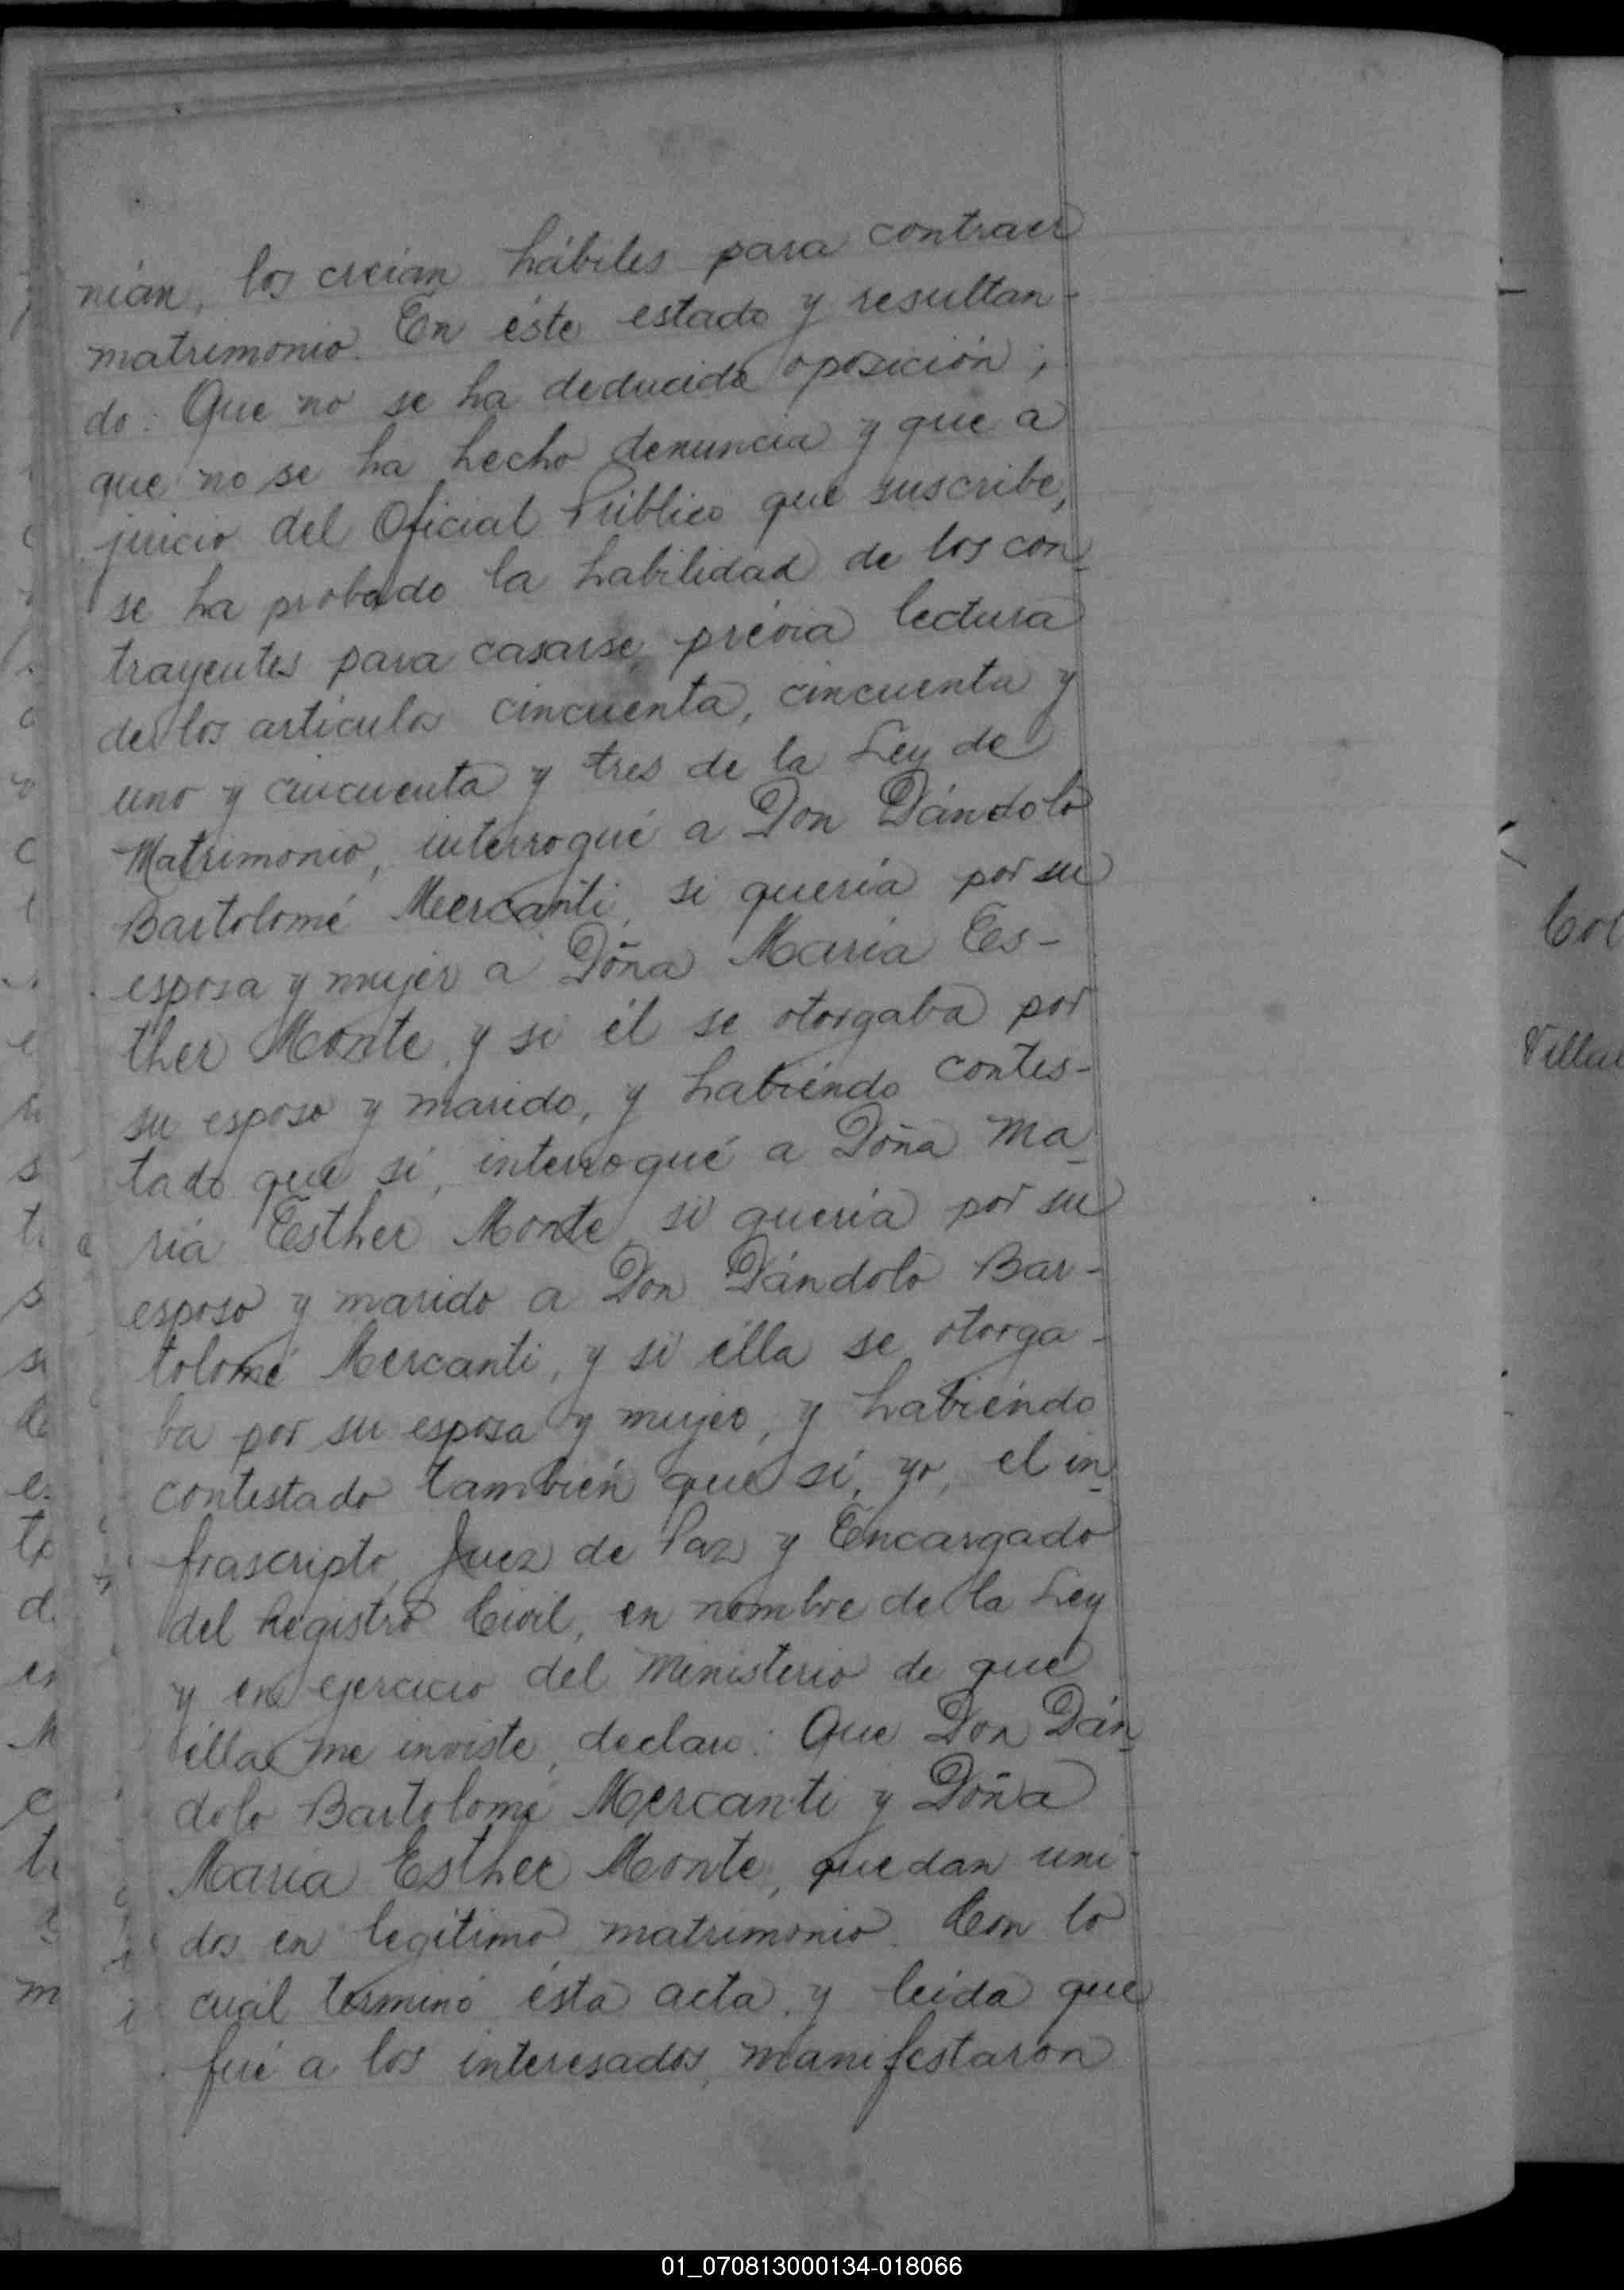 nían, los creían hábiles para contraer
matrimonio. En éste estado y resultan-
do: Que no se ha deducido oposición;
que no se ha hecho denuncia y que a
juicio del Oficial Público que suscribe,
se ha probado la habilidad de los con-
trayentes para casarse, prévia lectura
de los artículos cincuenta, cincuenta y
uno y cincuenta y tres de la Ley de
Matrimonio, interrogué a Don Dándolo
Bartolomé Mercanti, si quería por su
esposa y mujer a Doña María Es-
ther Monte, y si él se otorgaba por
su esposo y marido, y habiéndo contes-
tado que sí, interrogué a Doña Ma-
ría Esther Monte si quería por su
esposo y marido a Don Dándolo Bar-
tolomé Mercanti, y si élla se otorga-
ba por su esposa y mujer, y habiéndo
contestado también que sí, yo, el in-
frascripto, Juez de Paz y Encargado
del Registro Civil, en nombre de la Ley
y en ejercicio del Ministerio de que
élla me inviste, declaro: Que Don Dán-
dolo Bartolomé Mercanti y Doña
María Esther Monte, quedan uni-
dos en legítimo matrimonio. Con lo
cuál terminó ésta acta, y leída que
fué a los interesados, manifestaron
01_070813000134-018066